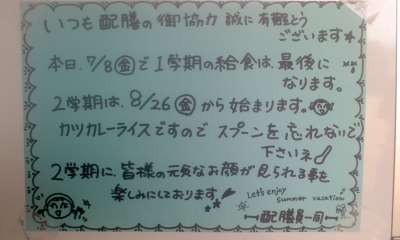 いつも配膳の御協力 誠に有難とう
ございます★
本日、7/8㊎で1学期の給食は、最後に
なります。
2学期は、8/26㊎から始まります。
カツカレーライスですので スプーンを忘れないで
下さいネ
2学期に、皆様の元気なお顔が見られる事を
楽しみにしております
Let's enjoy
summer vacation
配膳員一同